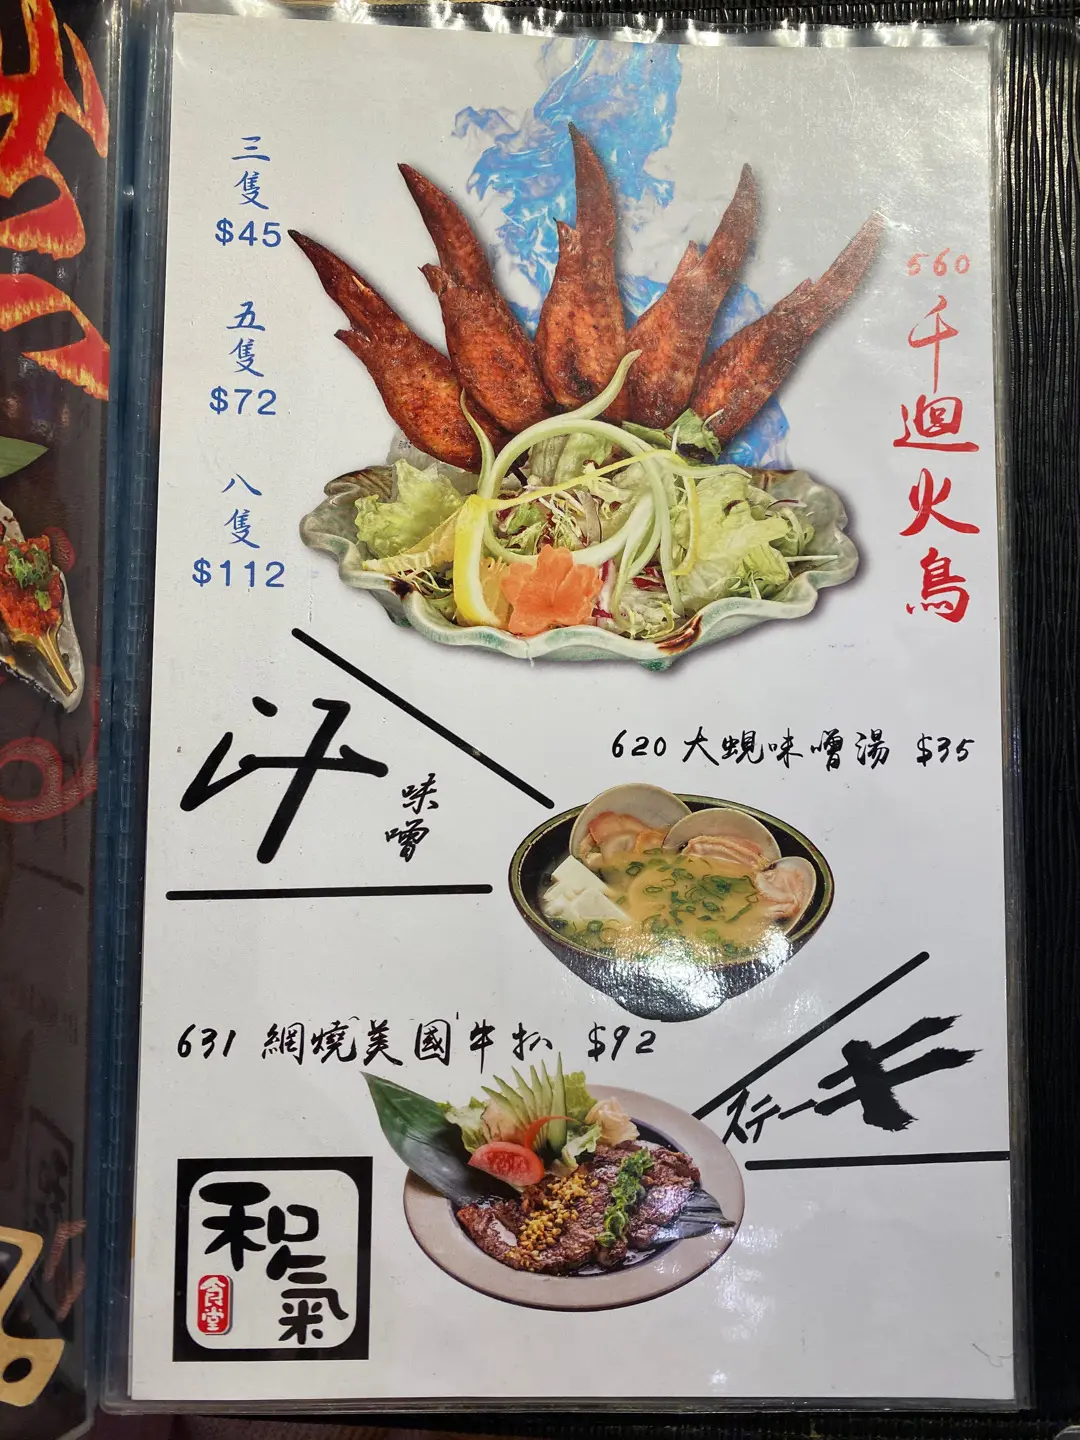 560
千迴火鳥
三隻
$45
五隻
$72
八隻
$112
汁
味噌
620 大蜆味噌湯 $35
631 網燒美國牛扒 $92
ステーキ
和氣
食堂